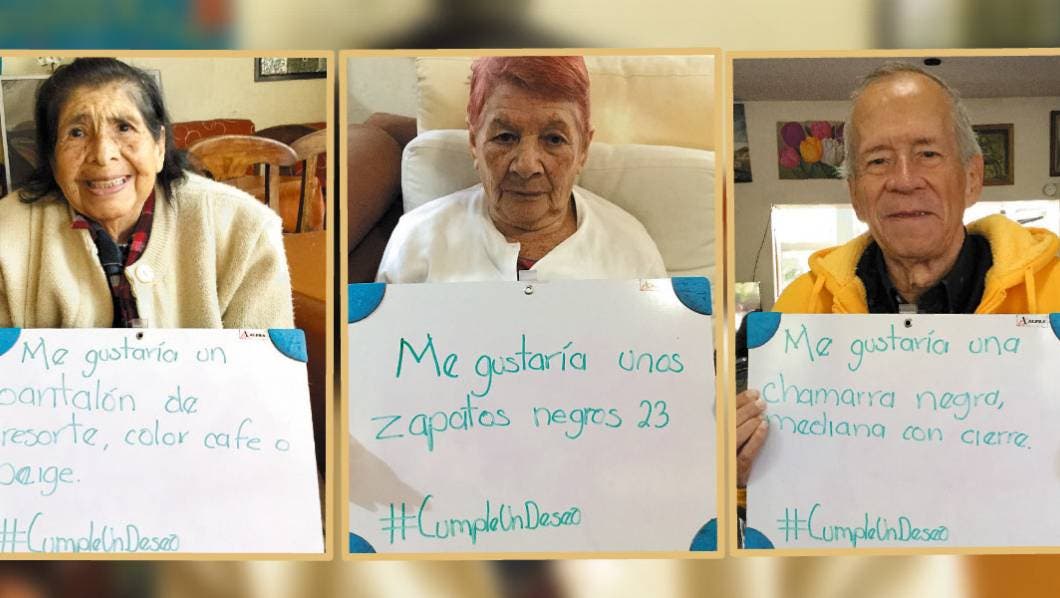 Me gustaría un
pantalón de
resorte, color cafe o
beige.
#CumpleUnDeseo
Me gustaría unos
zapatos negros 23
#CumpleUnDeseo
Me gustaría una
chamarra negra,
mediana con cierre.
#CumpleUnDeseo